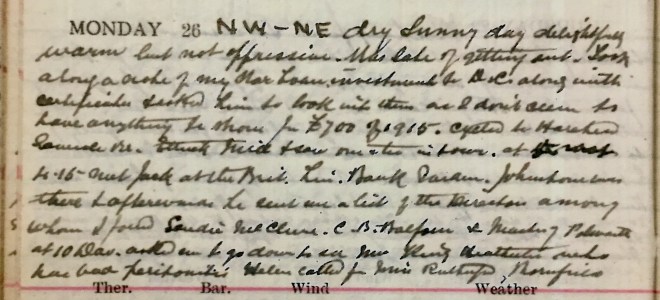 MONDAY 26 NW-NE dry Sunny day delightfully
warm but not oppressive. Was late of getting out. Took
along a note of my War Loan investment to D&C. along with
certificates & asked him to look into them as I don't seem to
have anything to show for £700 of 1915. Cycled to
Mill & saw one or two in town. at
4.15 met Jack at the Brit. Lin. Bank Johnstone was
there & afterwards he sent me a list of the Directors among
whom I found McClure. C. B. Balfour &
at 10 Dav. asked me to go down to see Mrs King who
has bad peritonitis Helen called for Miss Rutherford,
Ther. Bar. Wind Weather